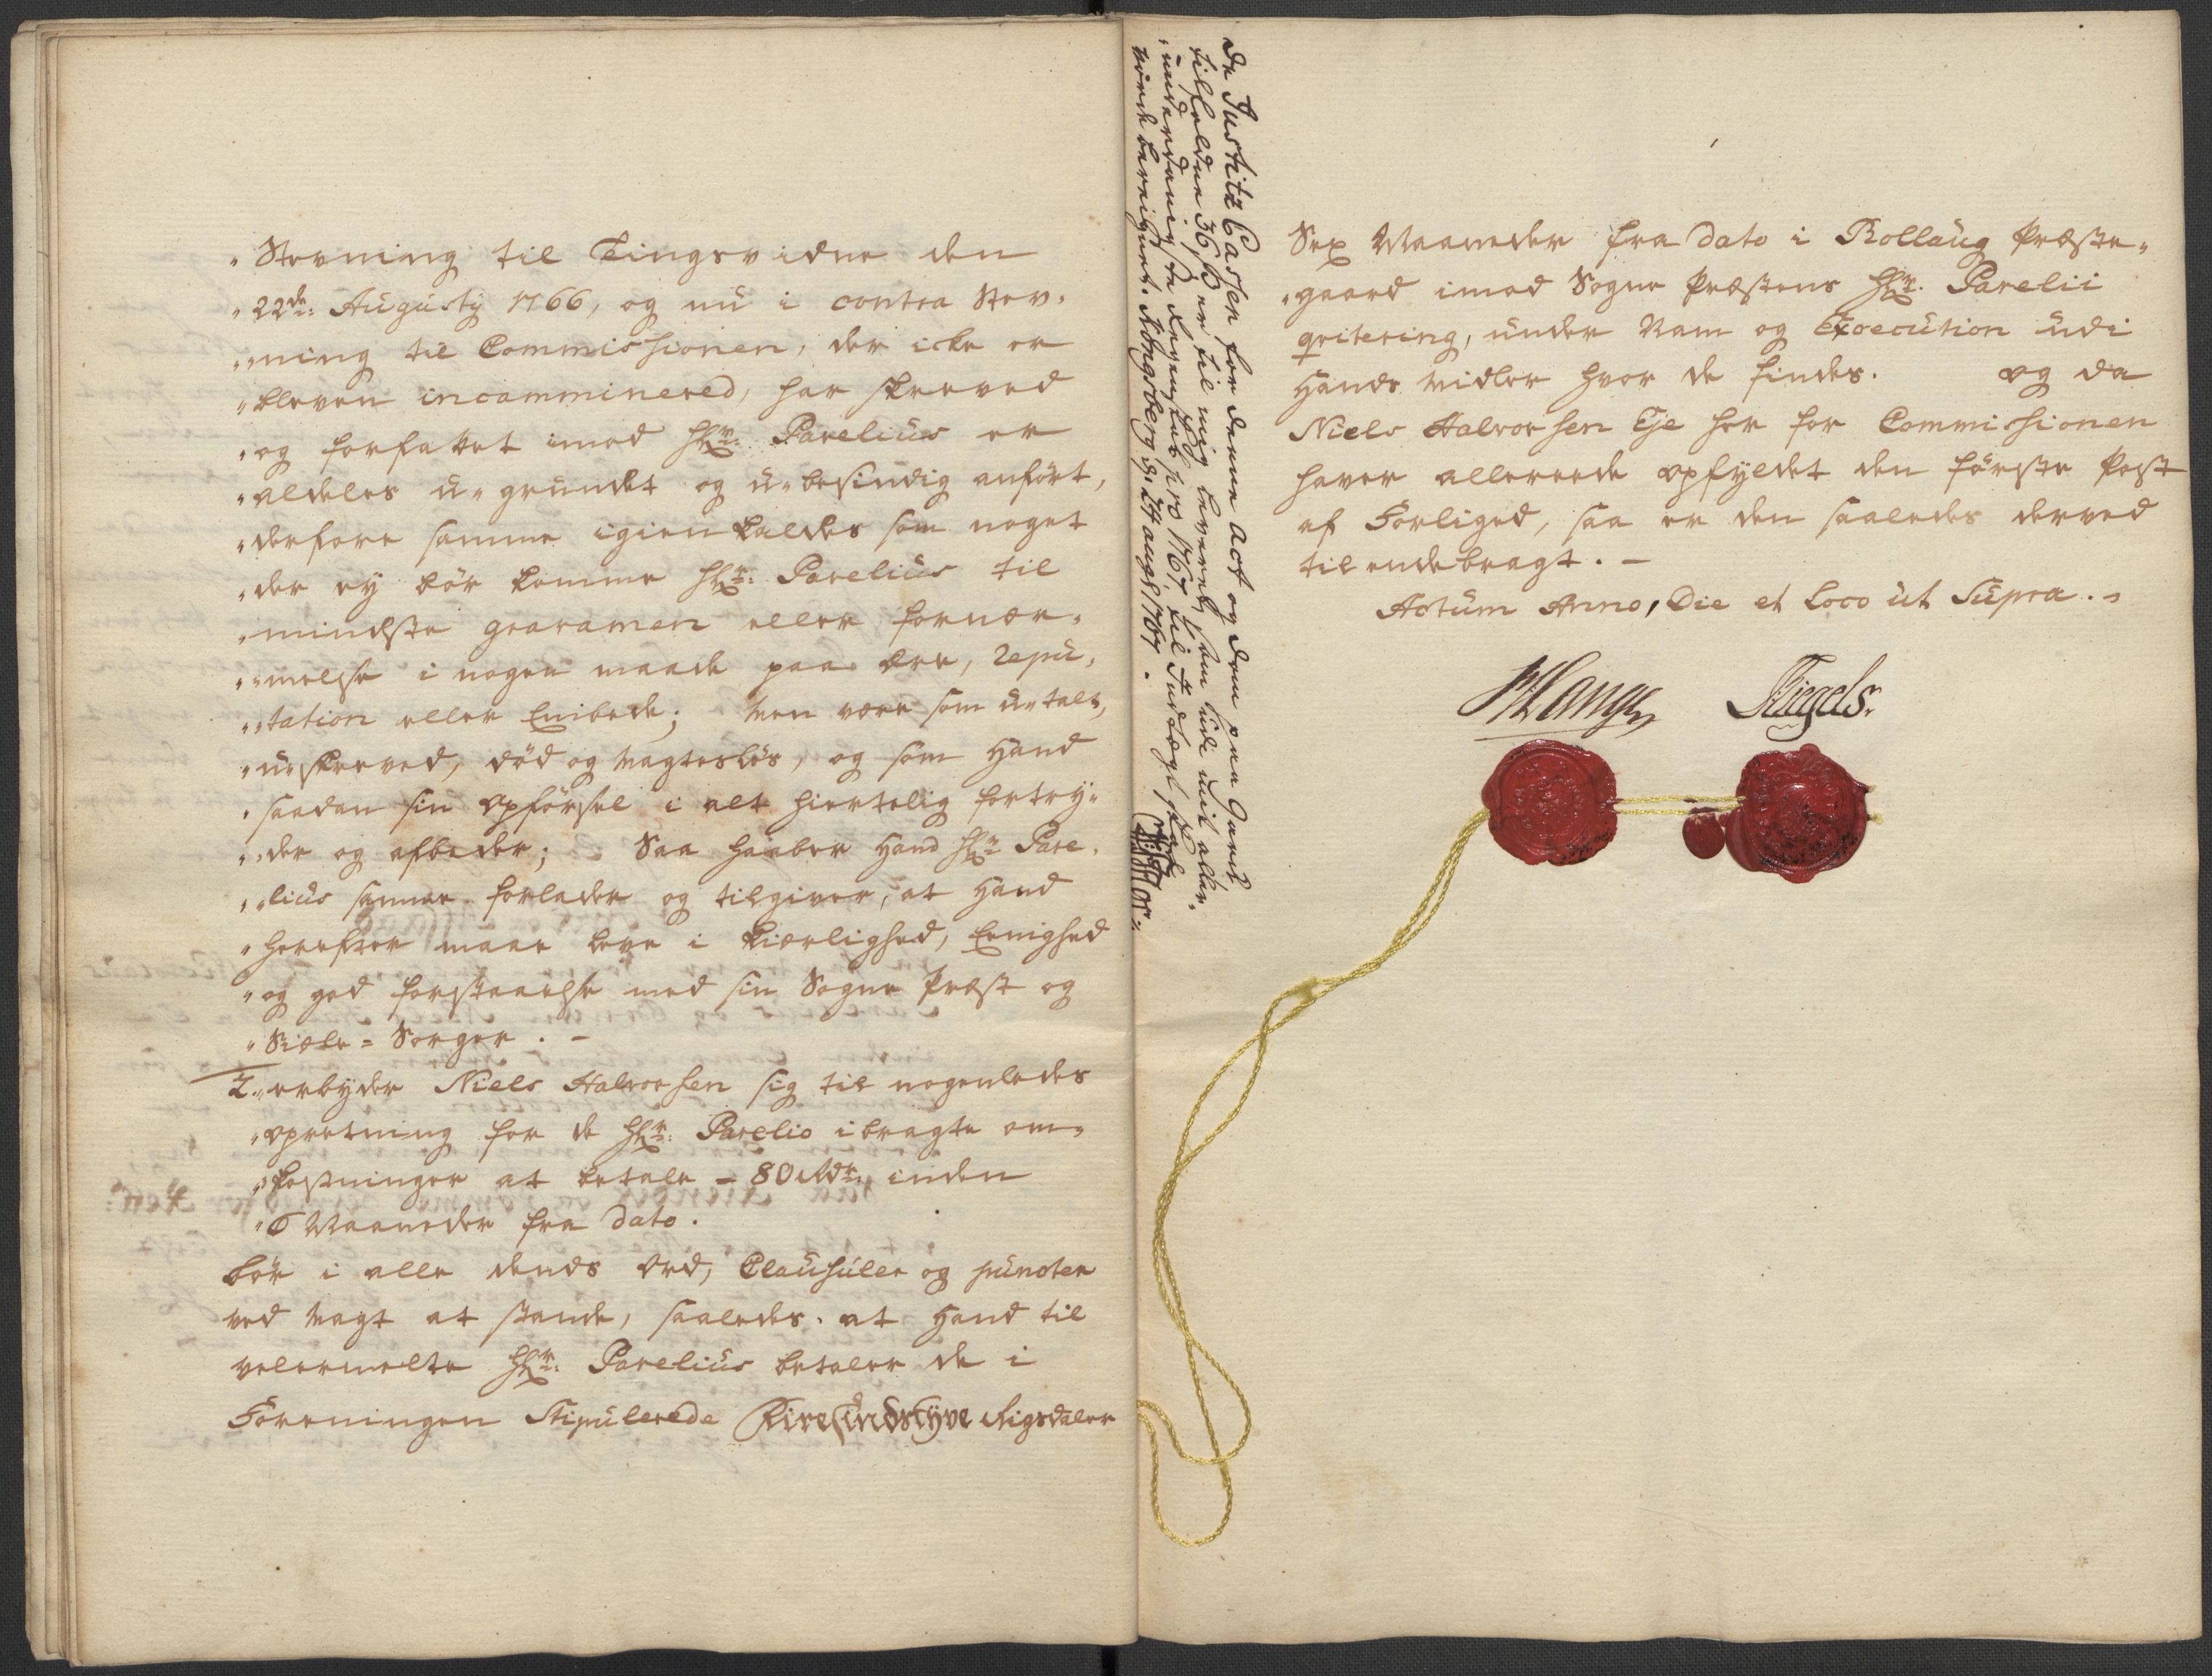 „Stevning til Tingsvidne den
„22de: Augusty 1766, og nu i contra Stev„
„ning til Commissionen, der icke er
„bleven incamminered, har skreved
„og forfattet imod Hr: Parelius er
„aldeles u„grundet og u„besindig anført,
„derfore samme igienkaldes som noget
„der ey bör komme Hr: Parelius til
„mindste gravamen eller fornær„
„melse i nogen maade paa ære, repu„
„tation eller Embede; Men være som u„talt,
„u„skreved, död og Magteslös, og som Hand
„saadan sin opförsel i alt hiertelig fortry„
„der og afbeder; Saa haaber Hand Hr: Pare„
„lius samme forlader og tilgiver, at Hand
„herefter maae leve i Kiærlighed, Eenighed
„og god forstaaelse med sin Sogne Præst og
„Siæle = Sörger. –
2. „erbyder Niels Halvorsen sig til nogenledes
„opretning for de Hr: Parelio ibragte om„
„kostninger at betale – 80 Rdr: inden
„6 Maaneder fra Dato.
bör i alle dends Ord, Clausuler og puncter
ved Magt at stande, saaledes at Hand til
velermelte Hr: Parelius betaler de i
Foreningen Stipulerede Firesindstyve Rigsdaler
De Justitz Cassen for denne Act og dom paa Gierde
tilfaldne 36 s er til mig leveret, som udi mit aller„
„underdanigste for 1767 til Indtægt skal
vorde beregnet. Kongsberg d: 24 aug: 1767.
Sex Maaneder fra Dato i Rollaug Præste„
„gaard imod Sogne Præstens Hr: Parelii
qvitering, under Nam og Execution udi
Hands Midler hvor de findes. og da
Niels Halvorsen Eje her for Commissionen
haver allereede opfyldet den förste Post
af Forliged, saa er den saaledes derved
til ende bragt. –
Actum Anno, Die et Loco ut Supra. –
Lange Fliegels.